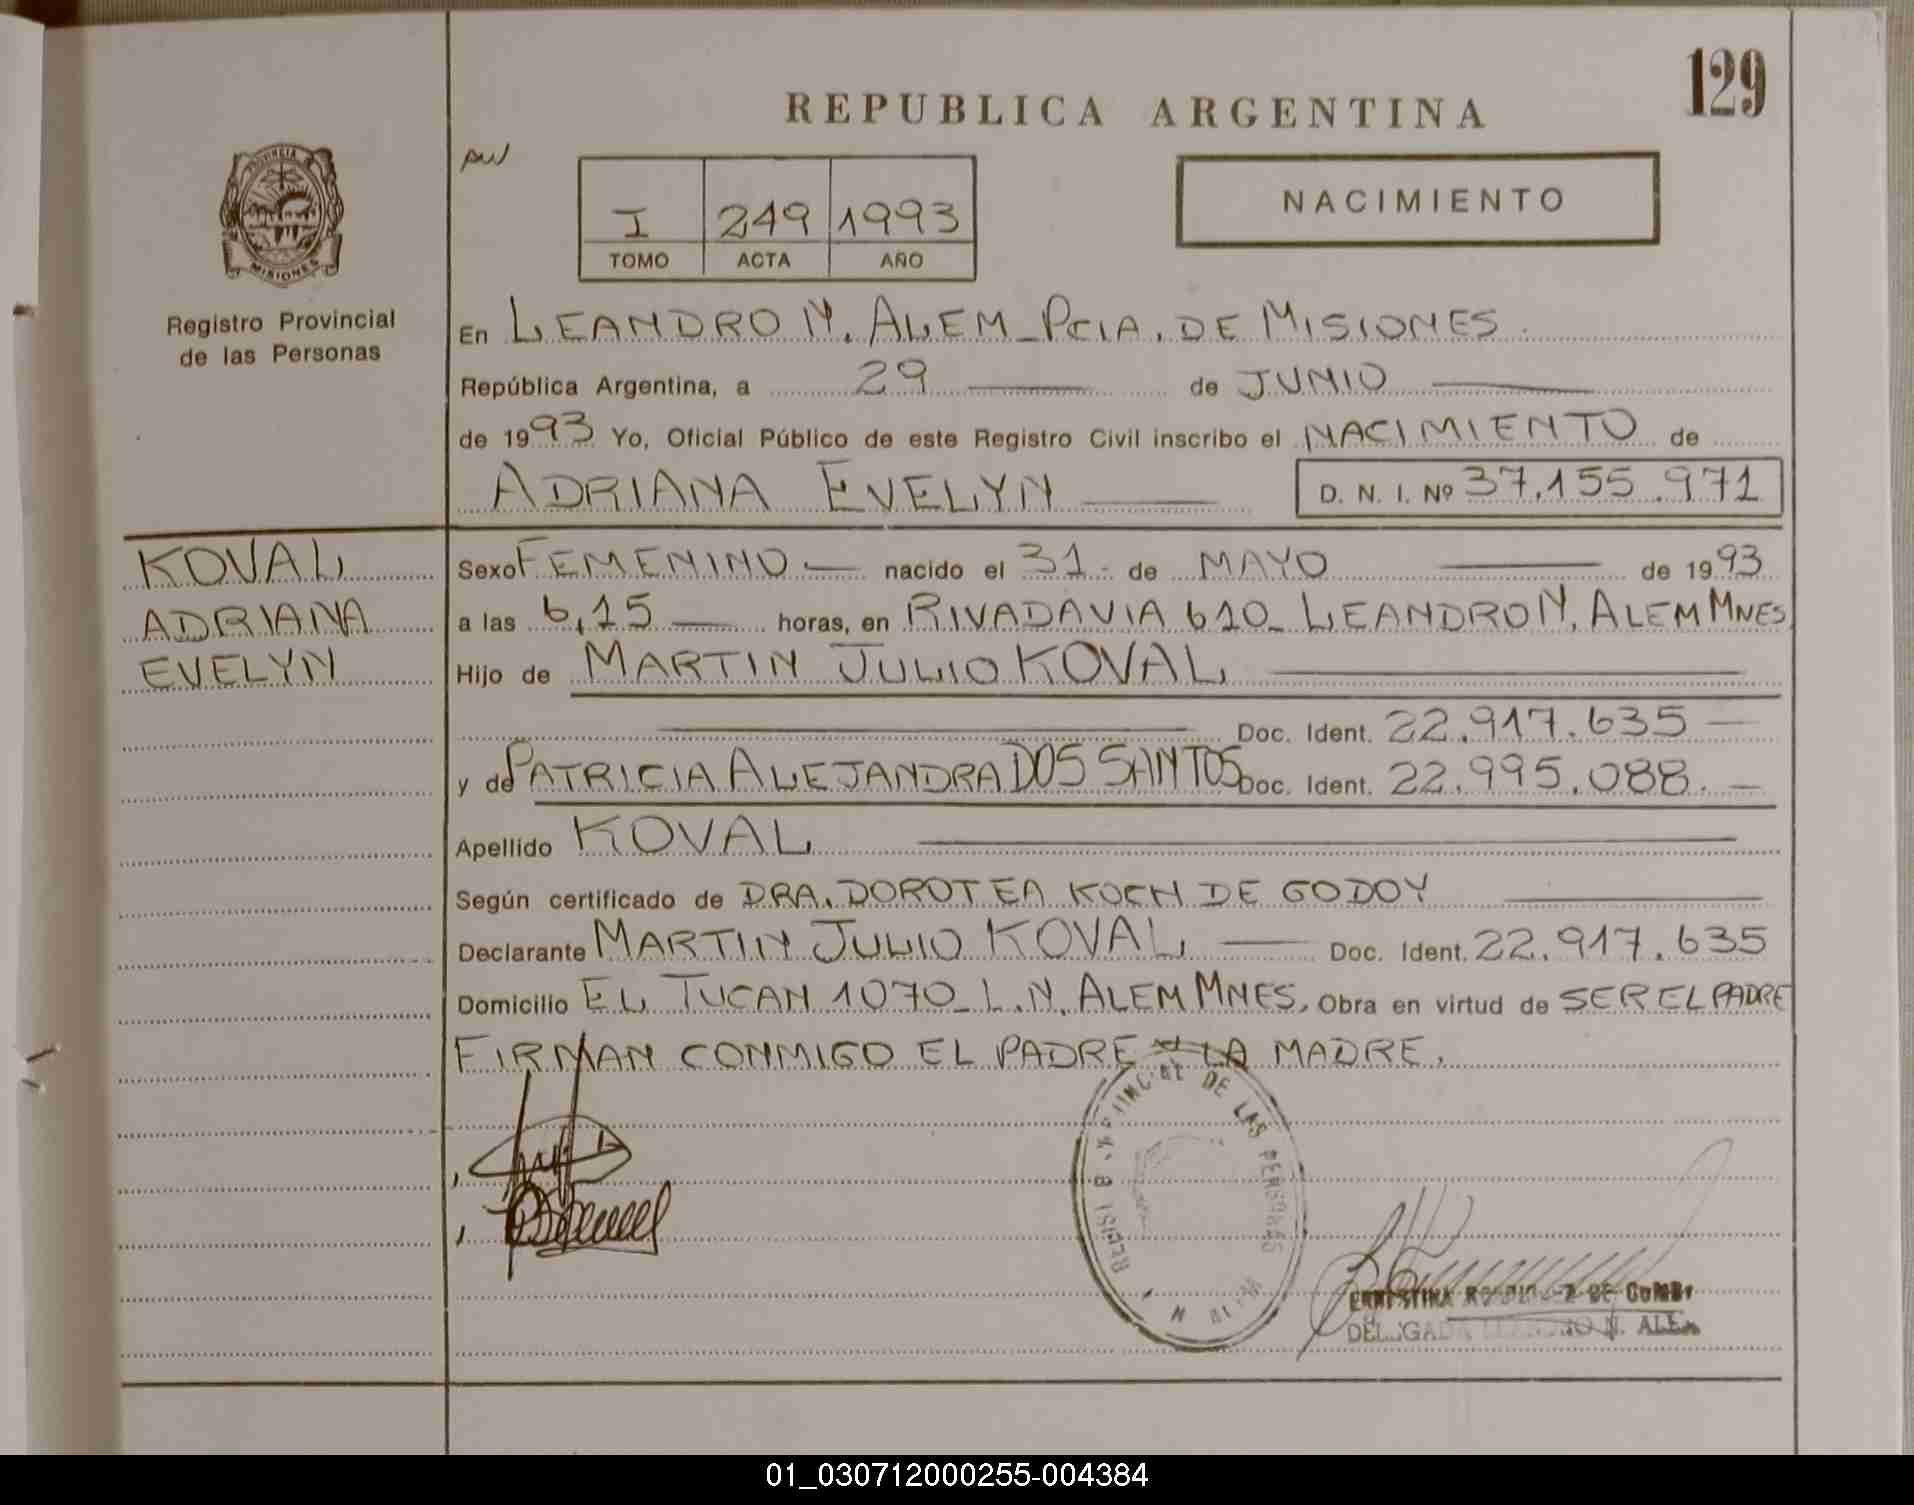 129
REPUBLICA ARGENTINA
PROVINCIA
MISIONES
Registro Provincial
de las Personas
I 249 1993
TOMO ACTA AÑO
NACIMIENTO
En LEANDRO N. ALEM - PCIA. DE MISIONES.
República Argentina, a 29 de JUNIO
de 1993 Yo, Oficial Público de este Registro Civil inscribo el NACIMIENTO de
ADRIANA EVELYN D. N. I. Nº 37.155.971
KOVAL
ADRIANA
EVELYN
Sexo FEMENINO nacido el 31 de MAYO de 1993
a las 6,15 horas, en RIVADAVIA 610 - LEANDRO N. ALEM MNES
Hijo de MARTIN JULIO KOVAL
Doc. Ident. 22.917.635
y de PATRICIA ALEJANDRA DOS SANTOS Doc. Ident. 22.995.088.
Apellido KOVAL
Según certificado de DRA. DOROTEA KOCH DE GODOY
Declarante MARTIN JULIO KOVAL Doc. Ident. 22.917.635
Domicilio EL TUCAN 1070 - L.N. ALEM MNES. Obra en virtud de SER EL PADRE
FIRMAN CONMIGO EL PADRE Y LA MADRE.
DE LAS PERSONAS
ERNESTINA
01_030712000255-004384